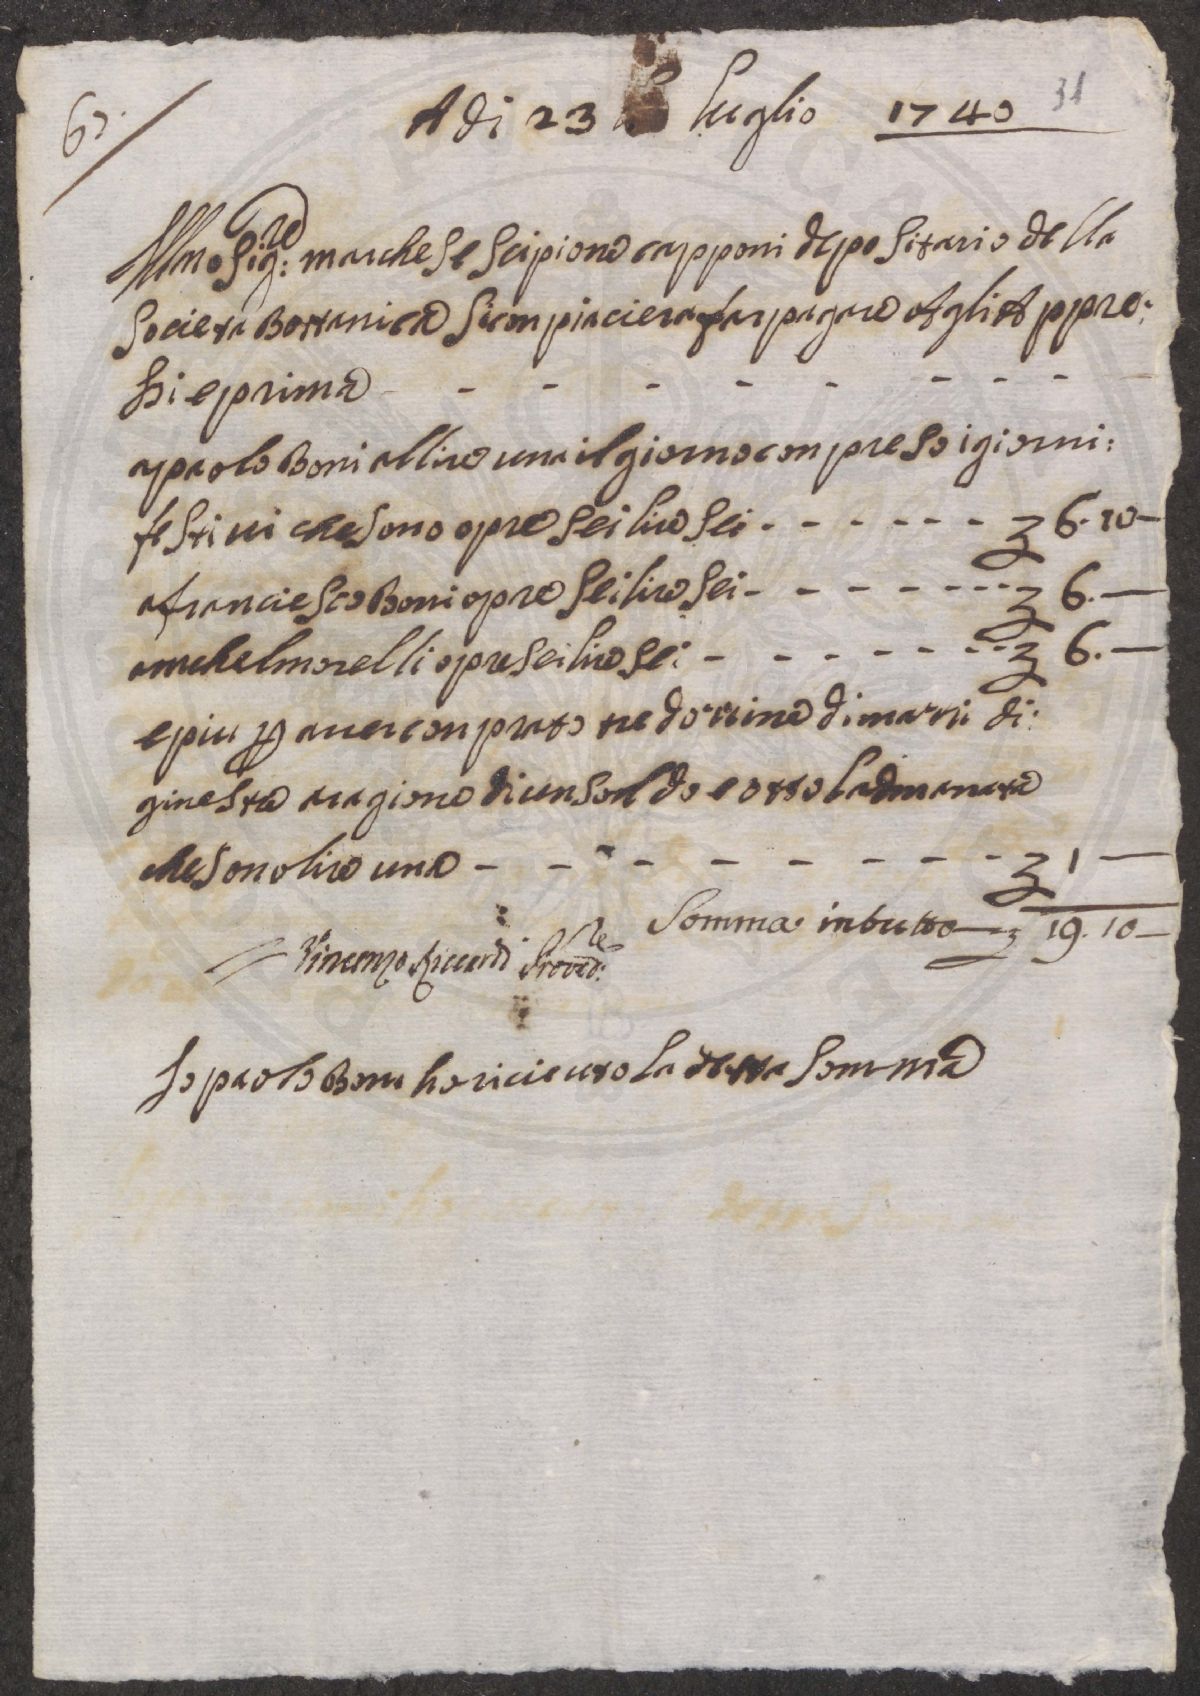 67.
31
A di 23 Luglio 1740
Ill.mo Sig:re marchese Scipione capponi depositario della
Societa Bottanica Si conpiaciera far pagare A gli Appre:
ssi e prima - - - - - - - - - -
a paolo Boni allire una il giorno conpreso i giorni:
festivi che sono opre sei lire sei - - - - - - 6.10 -
a franciesco Boni opre sei lire sei - - - - - - - 6. -
a michel morelli opre sei lire sei - - - - - - - 6. -
e piu p aver conprato tre dozzine di mazzi di:
ginestra a ragione di un soldo e otto la
che sono lire una - - - - - - - - - 1 -
Somma in tutto 19.10 -
Vincenzo Riccardi Proved:re
Io paolo Boni ho riceuto la detta Somma